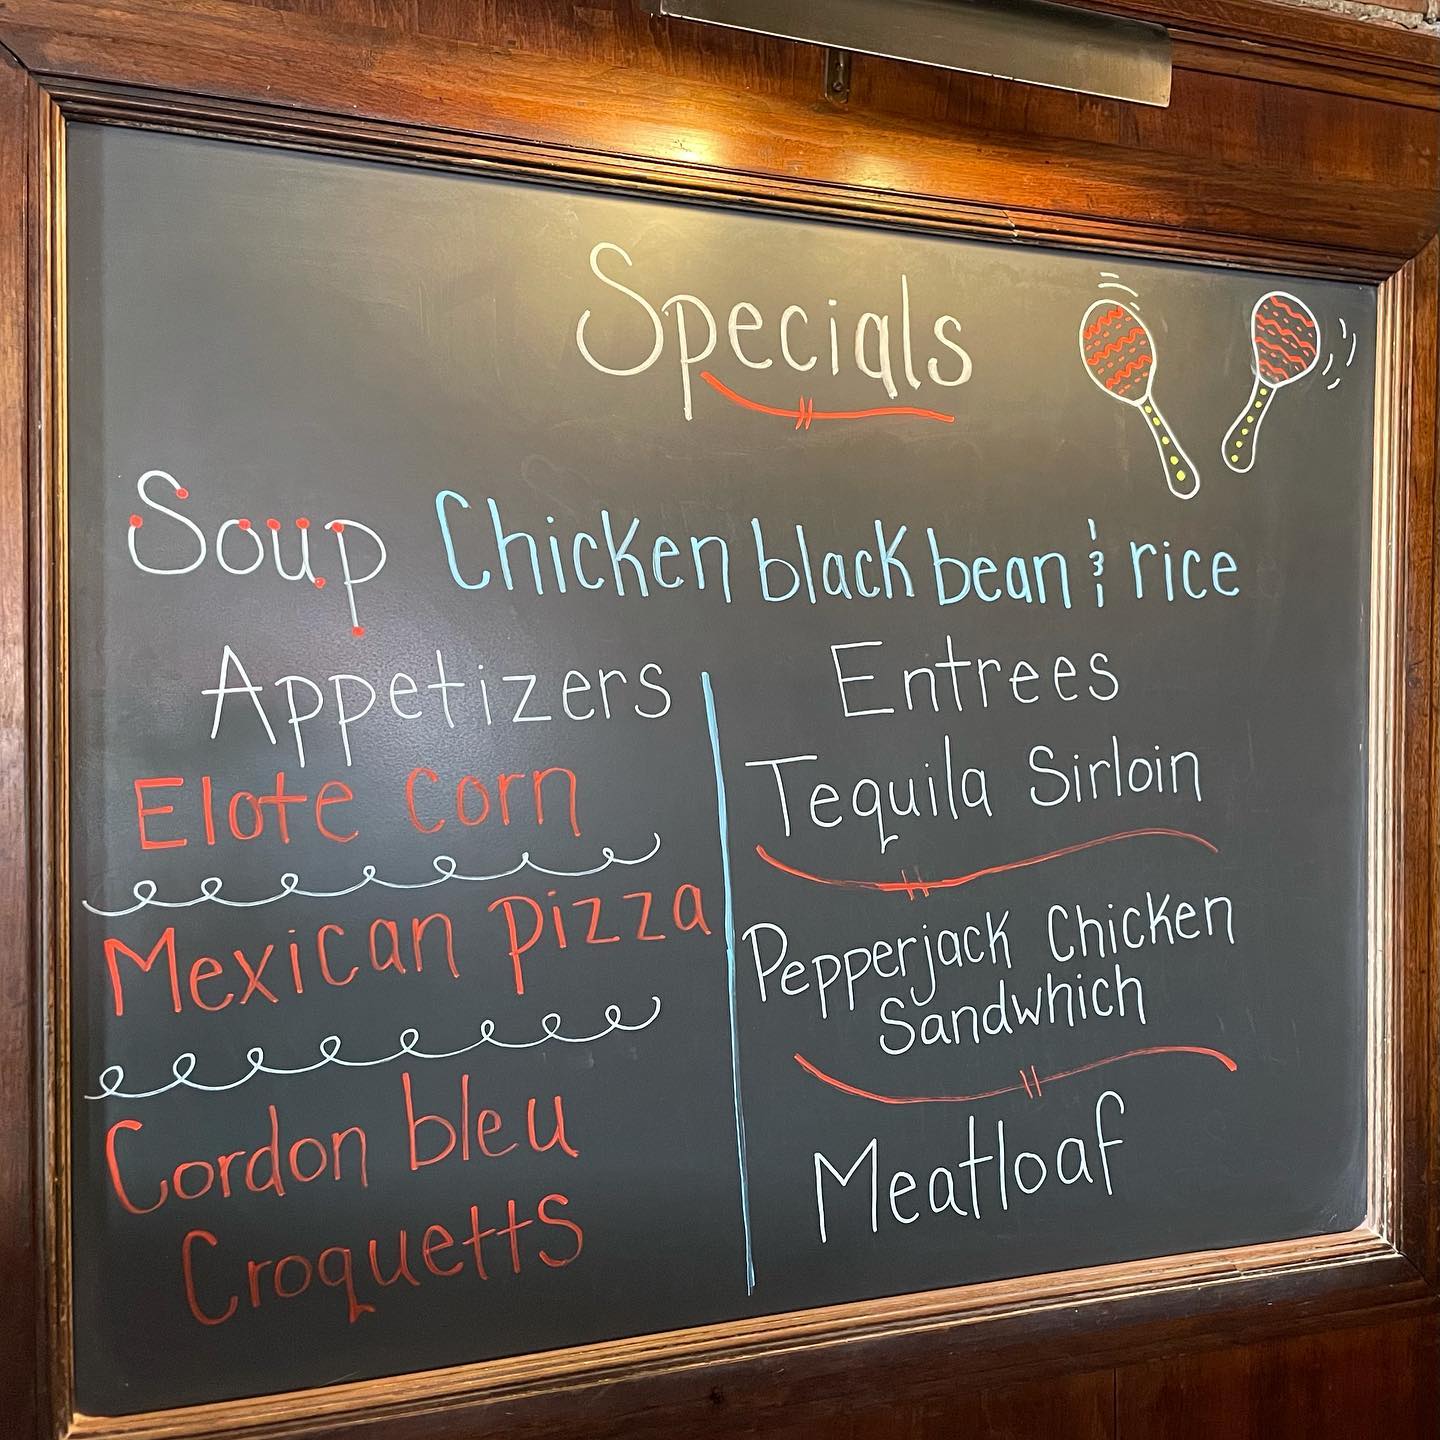 Specials
Soup Chicken black bean & rice
Appetizers
Elote Corn
Mexican Pizza
Cordon bleu
Croquetts
Entrees
Tequila Sirloin
Pepperjack Chicken
Sandwhich
Meatloaf